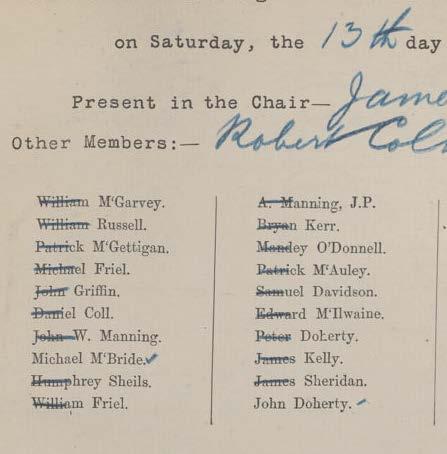 on Saturday, the 13th day
Present in the Chair— Jame
Other Members:— Robert Col
William M'Garvey.
William Russell.
Patrick M'Gettigan.
Michael Friel.
John Griffin.
Daniel Coll.
John W. Manning.
Michael M'Bride.
Humphrey Sheils.
William Friel.
A. Manning, J.P.
Bryan Kerr.
Mandey O'Donnell.
Patrick M'Auley.
Samuel Davidson.
Edward M'Ilwaine.
Peter Doherty.
James Kelly.
James Sheridan.
John Doherty.